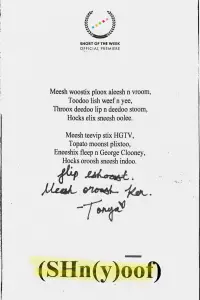 SHORT OF THE WEEK
OFFICIAL PREMIERE
Meesh woostix ploox aleesh n vroom,
Toodoo lish weef n yee,
Throox deedoo lip n deedoo stoom,
Hocks elix sneesh oolee.
Meesh teevip stix HGTV,
Topato moonst plixtoo,
Eneeshix fleep n George Clooney,
Hocks oroosh sneesh indoo.
flip eshoost.
Meesh oroosh Ker.
-Tonya
(SHn(y)oof)